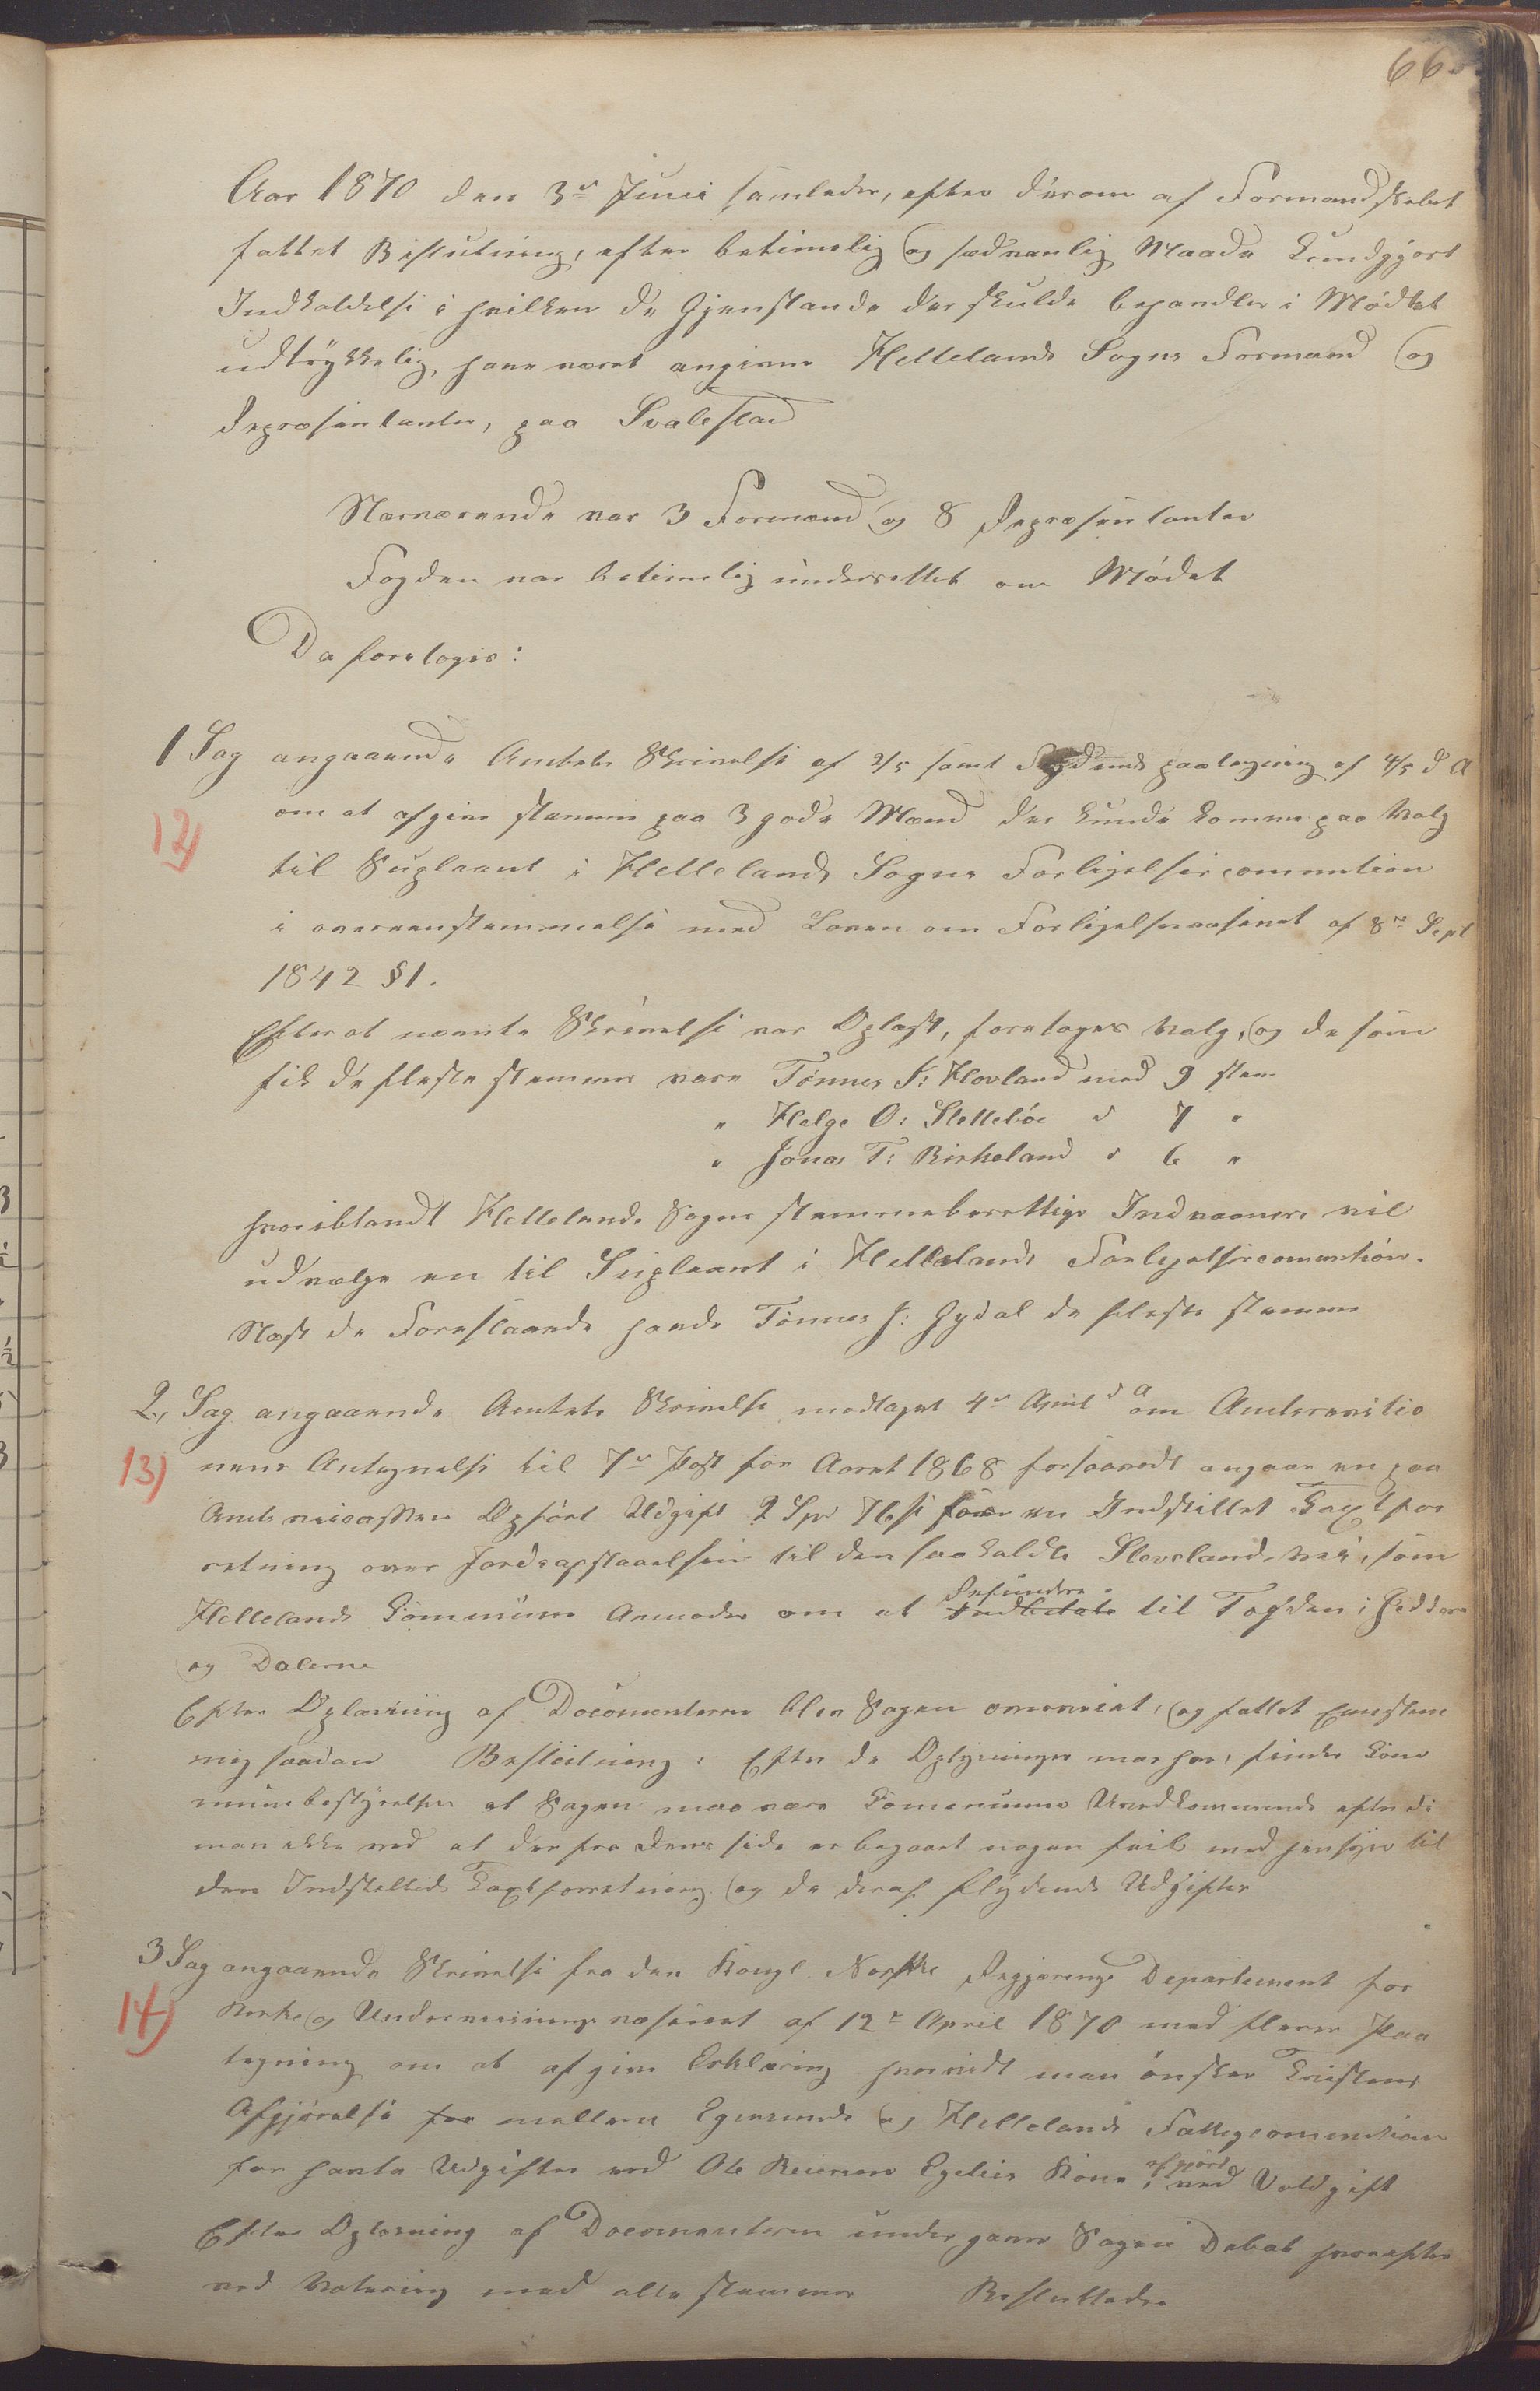 66
Aar 1870 den 3de Juni samledes, efter derom af Formandskabet
fattet Beslutning, efter betimelig og sædvanlig Maade kundgjort
Indkaldelse i hvilken de Gjenstande der skulde behandles i Mødet
udtrykkelig have været angivne Hellelands Sogns Formænd og
Repræsentanter, paa Svalestad
Nærværende var 3 Formænd og 8 Repræsentanter
Fogden var betimelig underrettet om Mødet
Da foretoges:
1 Sag angaaende Amtets Skrivelse af 2/5 samt Fogdens paategning af 4/5 d A
12)
om at afgive stemme paa 3 gode Mænd der kunde komme paa Valg
til Supleant i Hellelands Sogns Forligelsescommition
i overeenstemmelse med Loven om Forligelsesvæsenet af 8de Sept
1842 §1.
Efter at nævnte Skrivelse var Oplæst, foretoges Valg, og de som
fik de fleste stemmer vare Tønnes S: Hovland med 9 stem
" Helge O: Slettebøe " 7 "
" Jonas T: Birkeland " 6 "
hvoriblandt Hellelands Sogns stemmeberettige Indvaanere vil
udvælge en til Supleant i Hellelands Forligelsescommition.
Næst de Forestaaende havde Tønnes J: Gydal de fleste stemmer
2, Sag angaaende Amtets Skrivelse modtaget 4de April d a om Amtsrevitio
13)
nens Antegnelse til 7de Post for Aaret 1868 forsaavidt angaar en paa
Amts Opført Udgift 2 Spd for en Indstillet Taxtfor
retning over Jordeafstaaelsen til den saakaldte Slevelands vei, som
Hellelands Commune Anmodes om at Indbetale Refundere til Fogden i Jedderen
og Dalerne
Efter Oplæsning af Documenterne blev Sagen omvoteret, og fattet Eenstem
mig saadan Beslutning: Efter de Oplysninger man har, finder Com
munebestyrelsen at Sagen maa være Communen Uvedkommende efterdi
man ikke ved at der fra dens side er begaaet nogen feil med hensyn til
den Indstillede Taxtforretning og de deraf flydende Udgifter
3 Sag angaaende Skrivelse fra den Kongl. Norske Regjerings Departement for
14)
Kirke og Underviisningsvæsenet af 12te April 1870 med flere Paa
tegning om at afgive Erklæring hvorvidt man ønsker Tvistens
Afgjørelse for mellem Egersunds og Hellelands Fattigcommition
for havte Udgifter ved Ole Reiersen Egelies Kone, afgjort ved Voldgift
Efter Oplæsning af Documenterne undergaves Sagen Debat hvorefter
ved Votering med alle stemmer Besluttedes